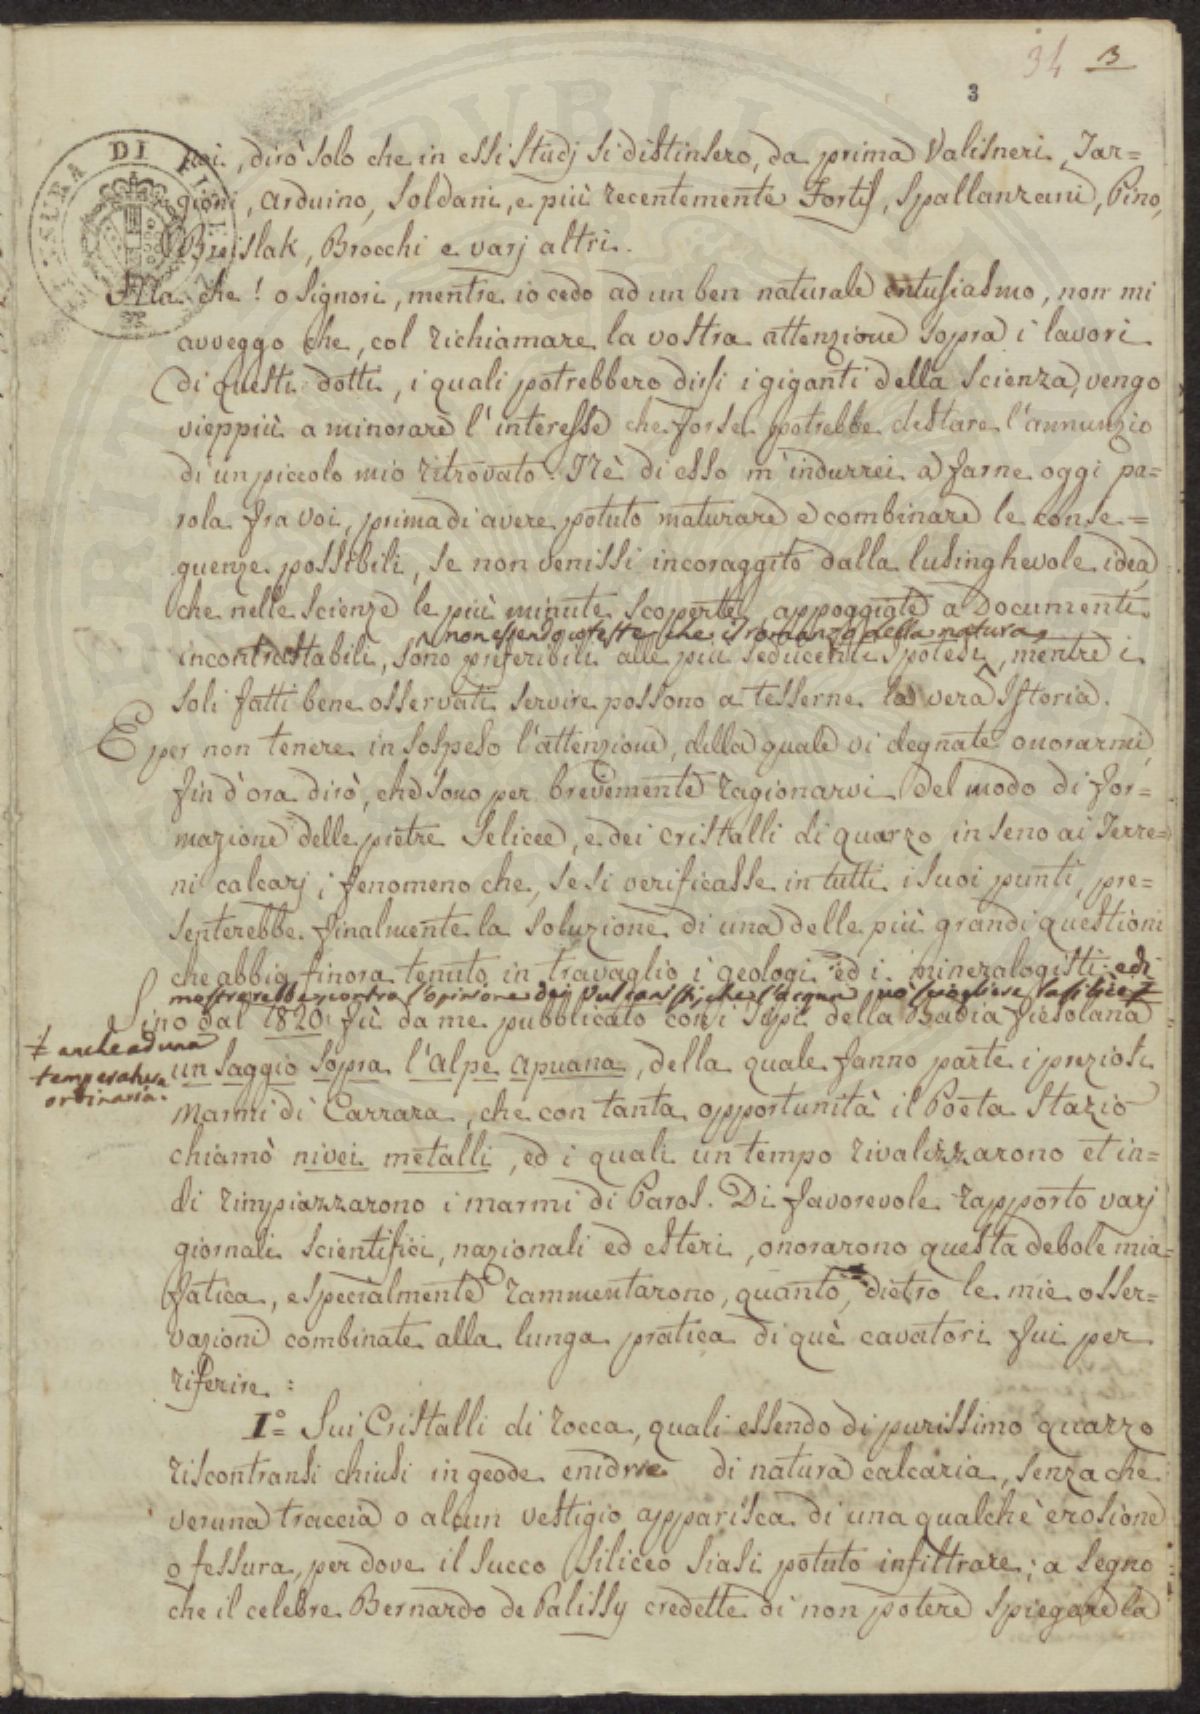 34 3
3
noi, dirò solo che in essi studj si distinsero, da prima Valisneri, Tar=
gioni, Arduino, Soldani, e più recentemente Fortis, Spallanzani, Pino,
Breislak, Brocchi e varj altri.
Ma che! o Signori, mentre io cedo ad un ben naturale entusiasmo, non mi
avveggo che, col richiamare la vostra attenzione sopra i lavori
di questi dotti, i quali potrebbero dirsi i giganti della Scienza, vengo
vieppiù a minorare l'interesse che forse potrebbe destare l'annunzio
di un piccolo mio ritrovato. Nè di esso m'indurrei a farne oggi pa=
rola fra voi, prima di avere potuto maturare e combinare le conse=
guenze possibili, se non venissi incoraggito dalla lusinghevole idea,
che nelle scienze le più minute scoperte, appoggiate a Documenti
non essendo queste che il romanzo della natura,
incontrastabili, sono preferibili alle più seducenti Ipotesi, mentre i
soli fatti bene osservati servire possono a tesserne la vera Istoria.
E per non tenere in sospeso l'attenzione, della quale vi degnate onorarmi,
fin d'ora dirò, che sono per brevemente ragionarvi del modo di for=
mazione delle pietre Selicee, e dei cristalli di quarzo in seno ai Terre=
ni calcarj; fenomeno che, se si verificasse in tutti i suoi punti, pre=
senterebbe finalmente la soluzione di una delle più grandi questioni
che abbia finora tenuto in travaglio i geologi ed i mineralogisti, edi
mostrerebbe, contro l'opinione dei Vulcanisti, che l'acqua può sciogliere la silice ǂ
Sino dal 1820 fù da me pubblicato con i tipi della Badia Fiesolana
ǂ anche ad una
un saggio sopra l'alpe apuana, della quale fanno parte i preziosi
temperatura
ordinaria.
Marmi di Carrara, che con tanta opportunità il Poeta Stazio
chiamò nivei metalli, ed i quali un tempo rivalizzarono et in=
di rimpiazzarono i marmi di Paros. Di favorevole rapporto varj
giornali scientifici, nazionali ed esteri, onorarono questa debole mia
fatica, e specialmente rammentarono, quanto, dietro le mie osser=
vazioni combinate alla lunga pratica di què cavatori fui per
riferire:
I.º= Sui Cristalli di rocca, quali essendo di purissimo quarzo
riscontransi chiusi in geode enidrie di natura calcaria, senza che
veruna traccia o alcun vestigio apparisca di una qualche erosione
o fessura, per dove il succo siliceo siasi potuto infiltrare; a segno
che il celebre Bernardo de Palissy credette di non potere spiegare la